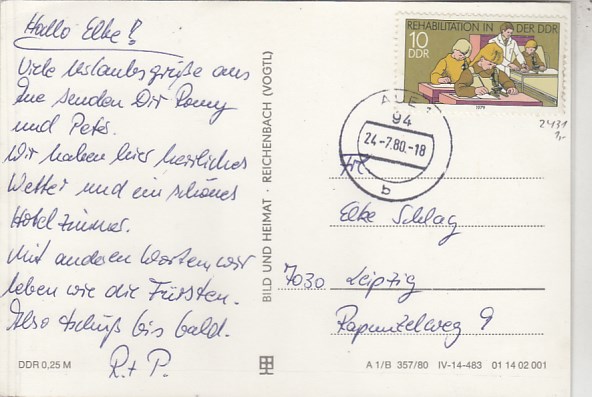 Hallo Elke!
Viele Urlaubsgrüße aus
Aue senden Dir Romy
und Peter.
Wir haben hier herrliches
Wetter und ein schönes
Hotelzimmer.
Mit anderen Worten, wir
leben wie die Fürsten.
Also tschüß bis bald.
R. + P.
DDR 0,25 M
BILD UND HEIMAT · REICHENBACH (VOGTL)
REHABILITATION IN DER DDR
10
DDR
1979
AUE 1
94
24.-7.80.-18
b
2431
1,-
Frl.
Elke Schlag
7030 Leipzig
Rapunzelweg 9
A 1/B 357/80 IV-14-483 01 14 02 001